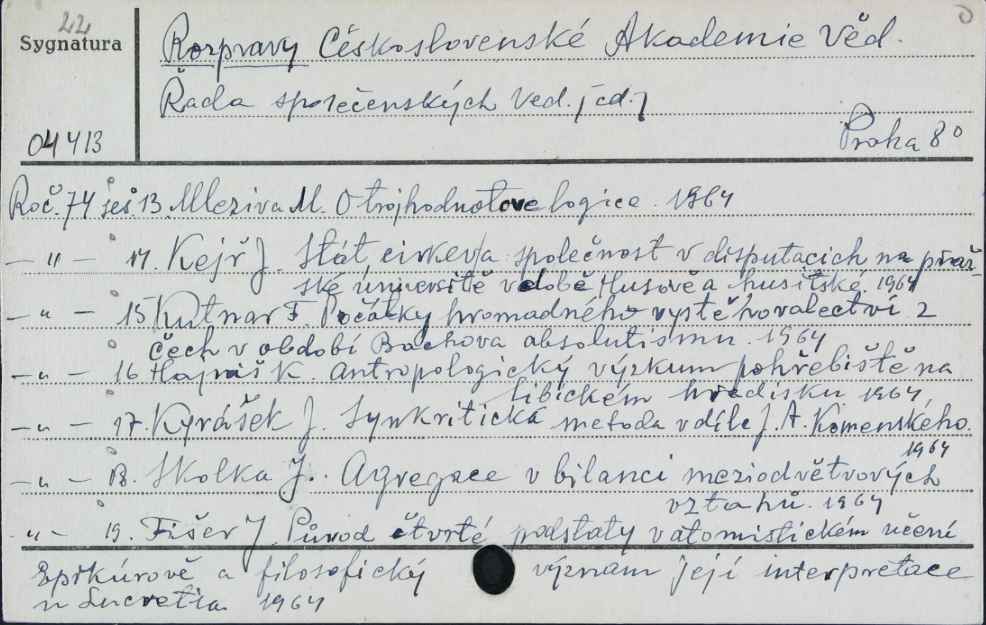 22
Sygnatura
04413
Rozpravy Československé Akademie Věd.
Řada společenských Ved. [cd.]
Praha 8°
Roč. 74 seš. 13. Mleziva M. O trojhodnotove logice. 1964
— " — 14. Kejř J. Stát, cirkev a společnost v disputacich na praž-
ské universitě v době Husově a husitské. 1964
— " — 15 Kutnar F. Počátky hromadného vystěhovalectví z
Čech v období Bachova absolutismu. 1964
— " — 16 Hajniš K. Antropologický výzkum pohřebiště na
libickém hradisku 1964
— " — 17. Kyrášek J. Synkritická metoda v díle J. A. Komenského.
1964
— " — 18. Skolka J. Agregace v bilanci meziodvětvových
vztahů. 1964
— " — 19. Fišer J. Původ čtvrté podstaty v atomistickém učení
Epikúrově a filosofický význam její interpretace
u Lucretia 1964